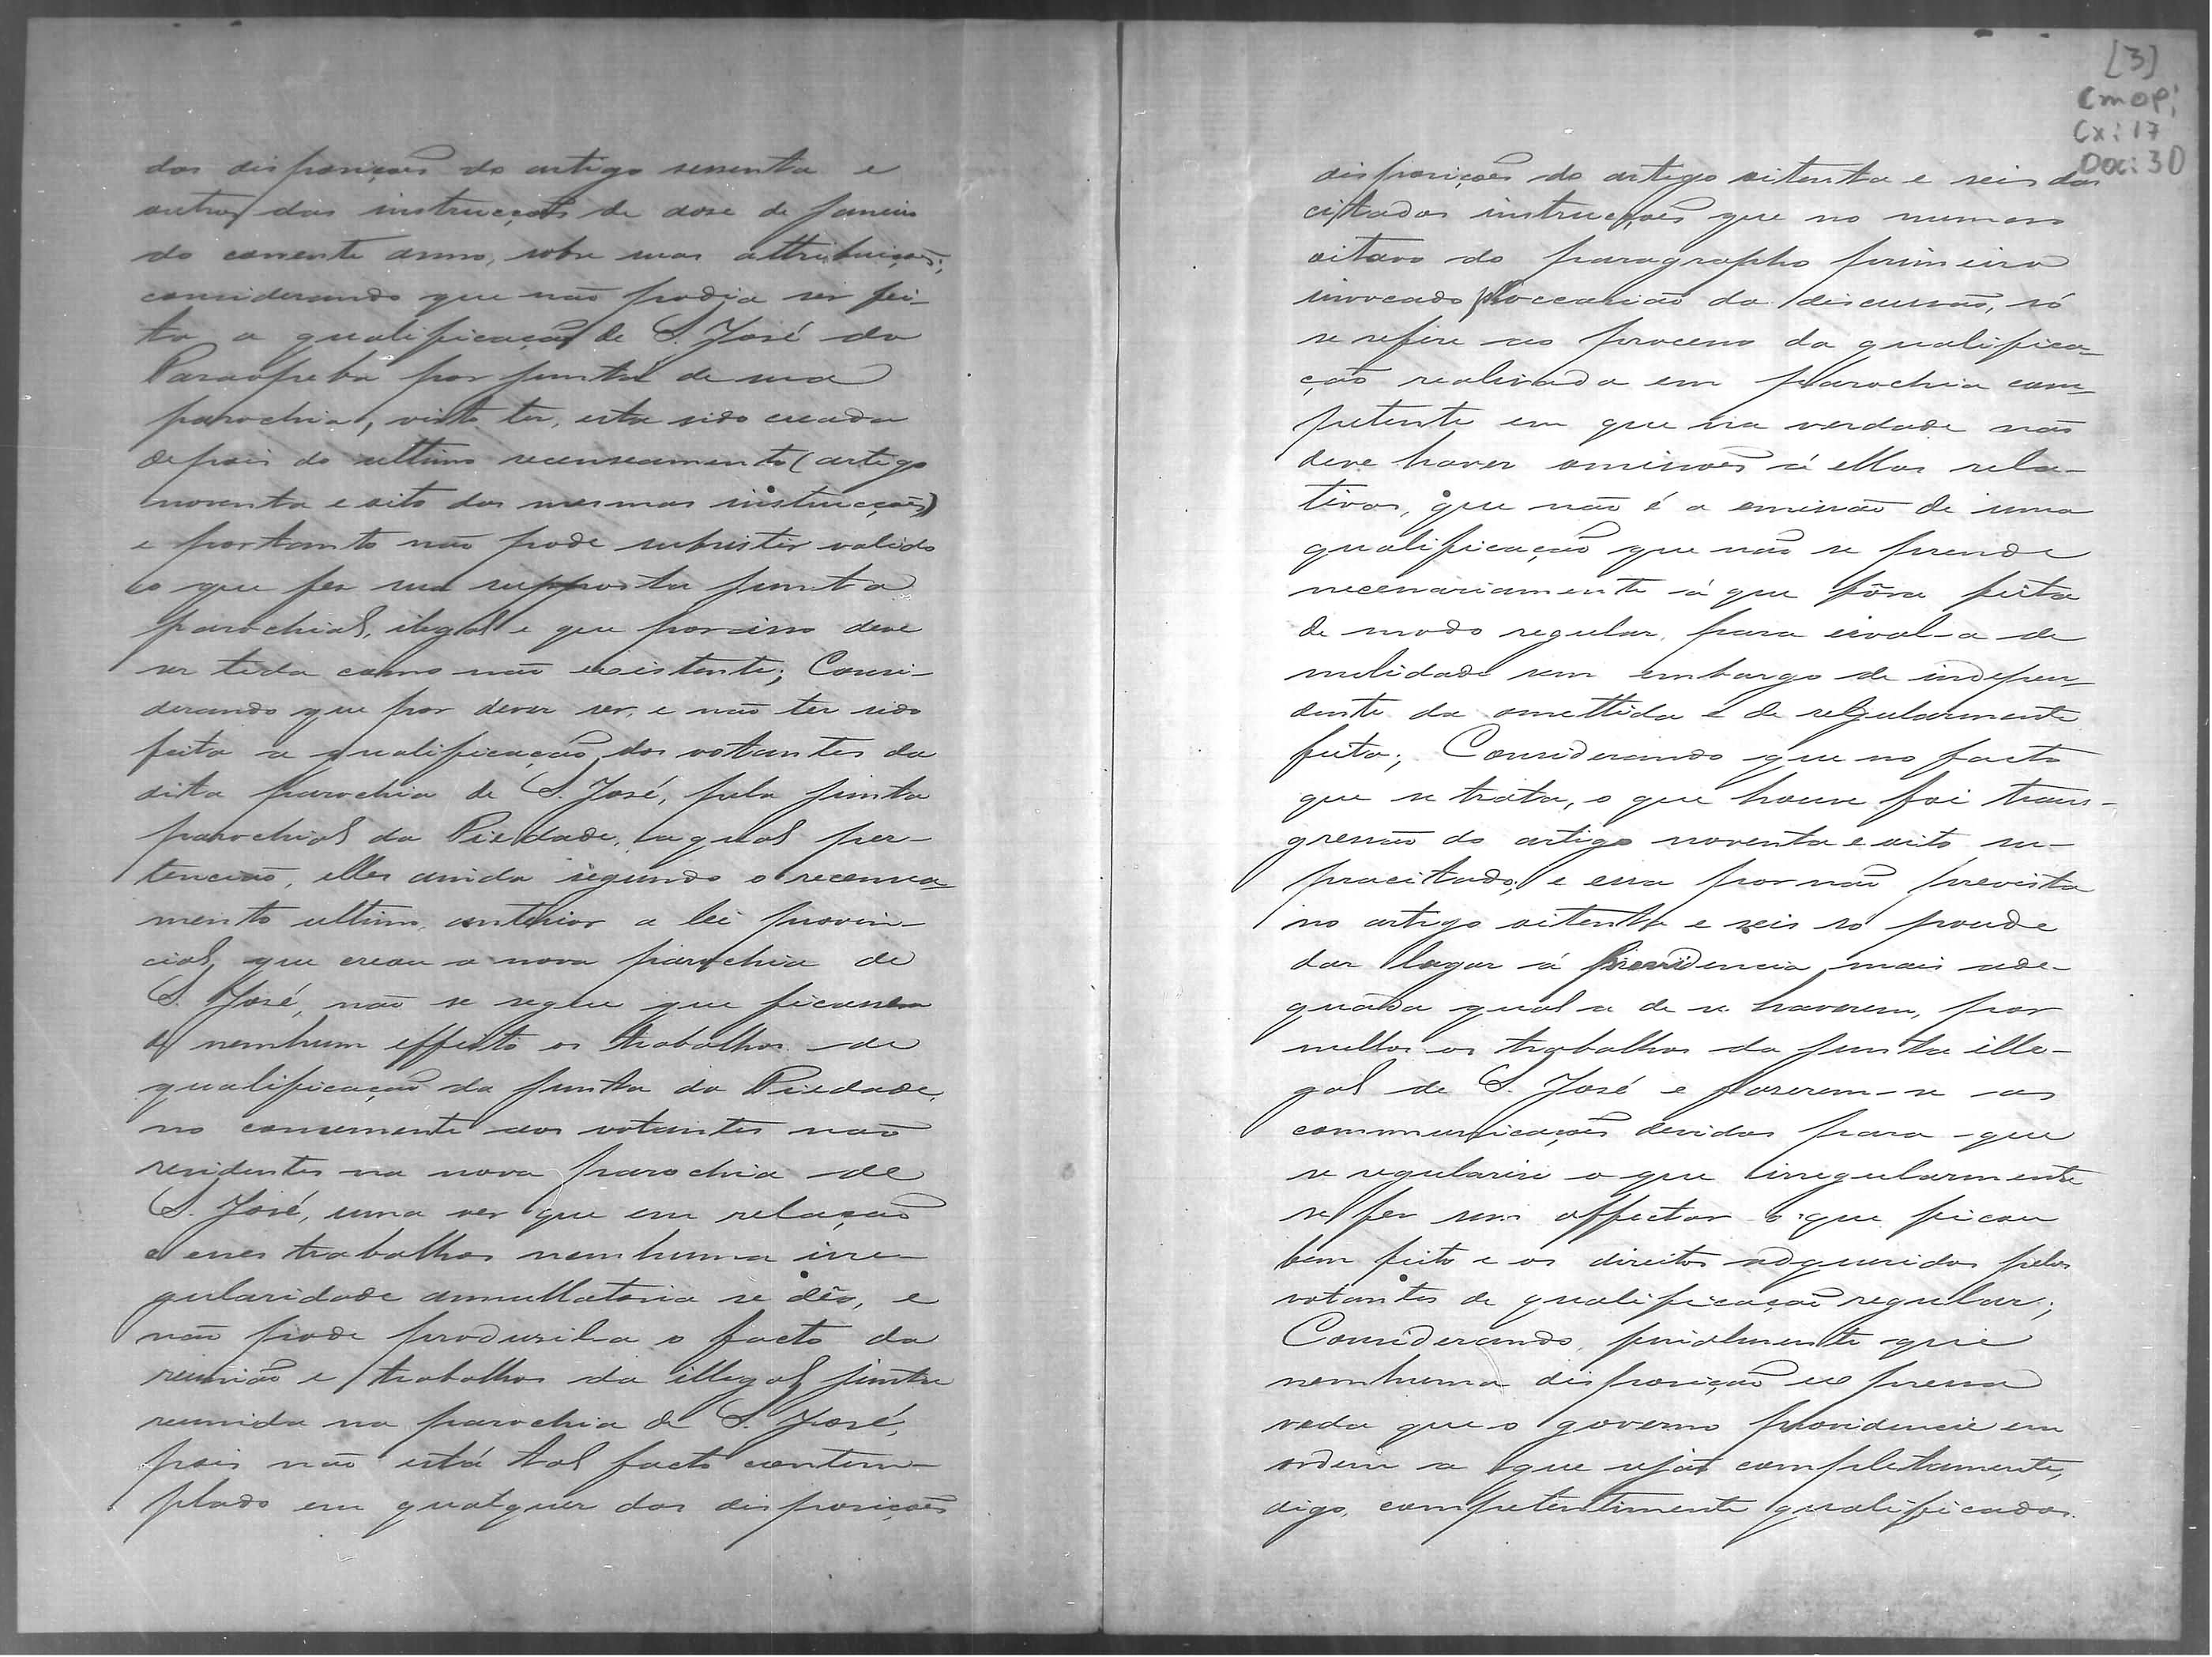 das disposições do artigo sessenta e
outros das instrucções de dose de Janeiro
do corrente anno, sobre suas attribuições;
considerando que não podia ser fei-
ta a qualificação de S. José do
Paraopeba por junta de sua
parochia, visto ter, esta sido creada
depois do ultimo recenseamento (artigo
noventa e oito das mesmas instrucções)
e portanto não pode subsistir valido
o que fez sua supposta junta
parochial, ilegal e que por isso deve
ser tida como não existente; Consi-
derando que por dever ser, e não ter sido
feita a qualificação dos votantes da
dita parochia de S. José, pela junta
parochial da Piedade, a qual per-
tencião, elles ainda segundo o recensea
mento ultimo, anterior a lei provin-
cial, que creou a nova parochia de
S. José, não se segue que ficassem
de nenhum effeito os trabalhos de
qualificação da junta da Piedade,
no concernente aos votantes não
residentes na nova parochia de
S. José, uma vez que em relação
a esses trabalhos nenhuma irre-
gularidade annullatoria se dêo, e
não pode produzil-a o facto da
reunião e trabalhos da illegal junta
reunida na parochia de S. José,
pois não está tal facto contem-
plado em qualquer das disposições
[3]
CMOP;
Cx: 17
Doc: 30
disposições do artigo oitenta e seis das
citadas instrucções que no numero
oitavo do paragrapho primeiro
invocado por occasião da discussão, só
se refere ao processo da qualifica-
ção realizada em parochia com-
petente em que na verdade não
deve haver omissões á ellas rela-
tivas, que não é a omissão de uma
qualificação que não se prende
necessariamente á que fôra feita
de modo regular, para eival-a de
nulidade sem embargo de indepen-
dente da omettida e de regularmente
feita; Considerando que no facto
que se trata, o que houve foi trans-
gressão do artigo noventa e oito su-
pracitado, e essa por não prevista
no artigo oitenta e seis só poude
dar lugar á providencia mais ade-
quada qual a de se haverem, por
nullos os trabalhos da junta ille-
gal de S. José e faserem-se as
communicações devidas para que
se regularise o que irregularmente
se fez sem affectar o que ficou
bem feito e os direitos adqueridos pelos
votantes de qualificação regular;
Considerando, finalmente que
nenhuma disposição expressa
veda que o governo providencie em
ordem a que sejão completamente,
digo, competentimente qualificados